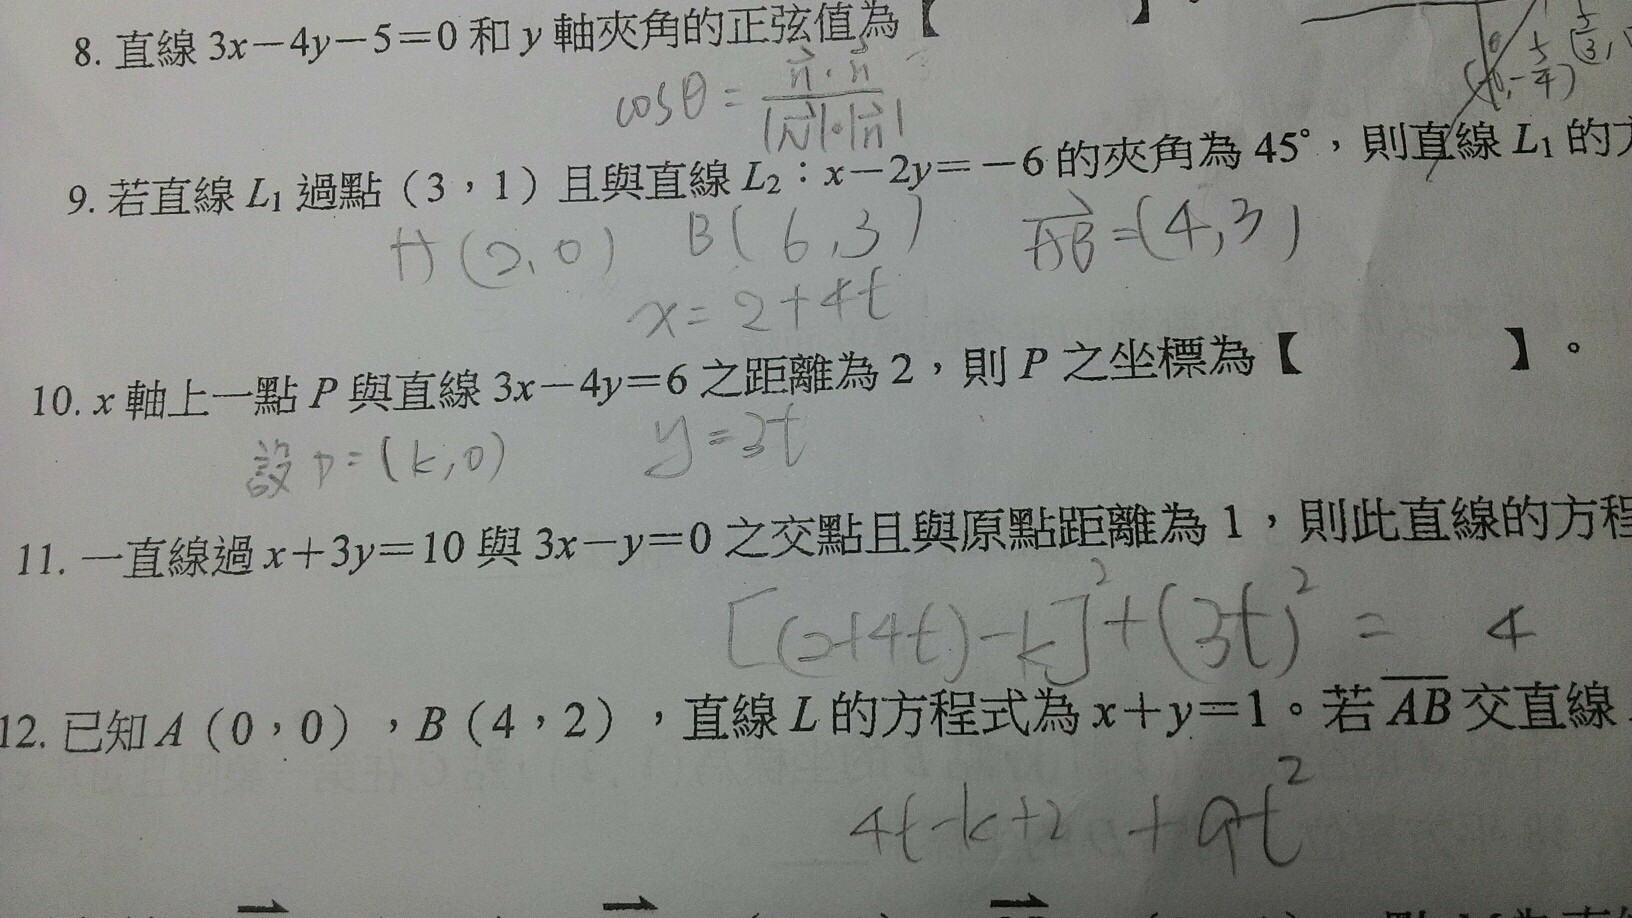 8. 直線 3x－4y－5＝0 和 y 軸夾角的正弦值為【 】。
(0,-5/4)
cosθ = n⃗·n⃗ / |N⃗|·|n⃗|
9. 若直線 L₁ 過點（3，1）且與直線 L₂：x－2y＝－6 的夾角為 45°，則直線 L₁ 的方
A(2,0) B(6,3) AB⃗=(4,3)
x=2+4t
10. x 軸上一點 P 與直線 3x－4y＝6 之距離為 2，則 P 之坐標為【 】。
設 P=(k,0) y=3t
11. 一直線過 x＋3y＝10 與 3x－y＝0 之交點且與原點距離為 1，則此直線的方程
[(2+4t)-k]²+(3t)² = 4
12. 已知 A（0，0），B（4，2），直線 L 的方程式為 x＋y＝1。若 AB 交直線
4t-k+2 +9t²